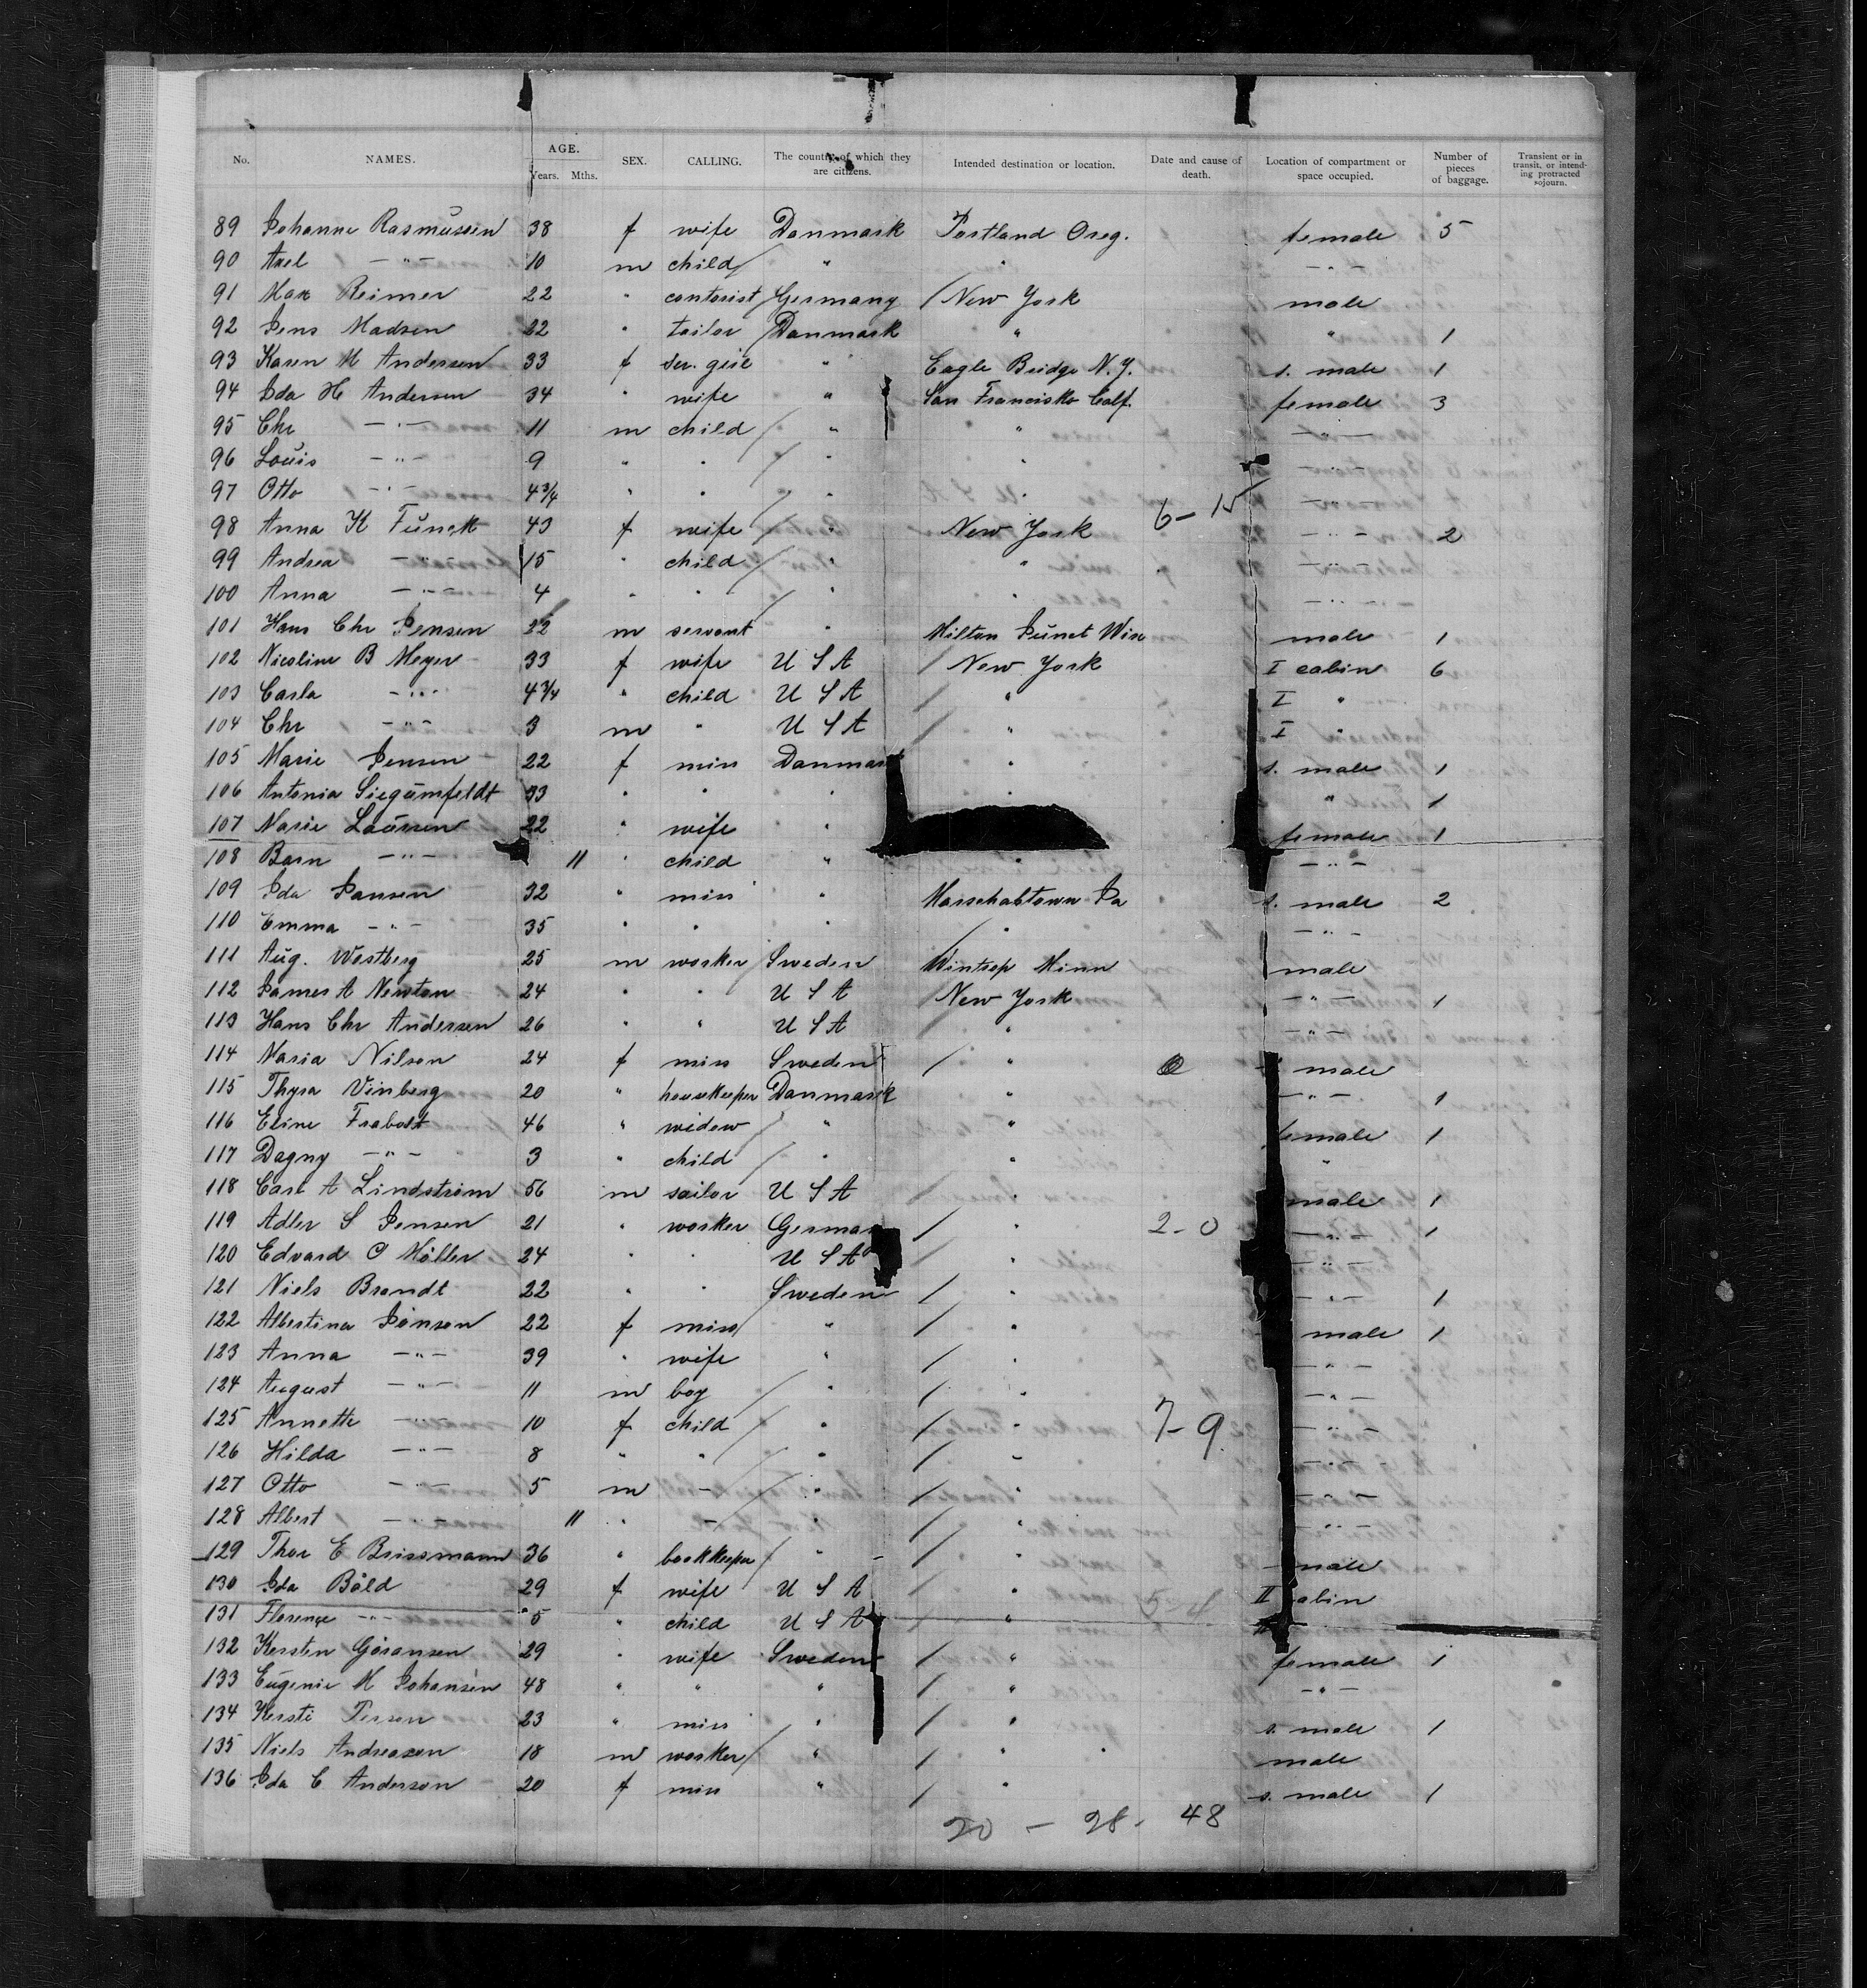 No. NAMES. AGE. Years. Mths. SEX. CALLING. The country of which they are citizens. Intended destination or location. Date and cause of death. Location of compartment or space occupied. Number of pieces of baggage. Transient or in transit, or intending protracted sojourn.
89 Johanne Rasmussen 38 f wife Danmark Portland Oreg. female 5
90 Axel -"- 10 m child " " -"-
91 Max Reimer 22 " contorist Germany New York male
92 Jens Madsen 22 " tailor Danmark " " 1
93 Karen M Andersen 33 f ser. girl " Eagle Bridge N.Y. s. male 1
94 Ida H Andersen 34 " wife " San Francisko Calf. female 3
95 Chr -"- 11 m child " " -"-
96 Louis -"- 9 " " " " -"-
97 Otto -"- 4 3/4 " " " " -"-
98 Anna K Funck 43 f wife " New York 6-15 -"- 2
99 Andrea -"- 15 " child " " -"-
100 Anna -"- 4 " " " " -"-
101 Hans Chr Jensen 22 m servant " Milton Junct Wis male 1
102 Nicoline B Meyer 33 f wife U S A New York I cabin 6
103 Carla -"- 4 3/4 " child U S A " I "
104 Chr -"- 3 m " U S A " I "
105 Marie Jensen 22 f miss Danmark " s. male 1
106 Antonia Siegumfeldt 33 " " " " " 1
107 Marie Laursen 22 " wife " female 1
108 Barn -"- 11 " child " " -"-
109 Ida Jansen 32 " miss " Marschaltown Ia s. male 2
110 Emma -"- 35 " " " " -"-
111 Aug. Westberg 25 m worker Sweden Wintrop Minn male
112 James A Newton 24 " " U S A New York -"- 1
113 Hans Chr Andersen 26 " " U S A " -"-
114 Maria Nilson 24 f miss Sweden " male
115 Thyra Vinberg 20 " housekeeper Danmark " -"- 1
116 Eline Frabolt 46 " widow " " female 1
117 Dagny -"- 3 " child " " "
118 Carl A Lindström 56 m sailor U S A " male 1
119 Adler S Jensen 21 " worker German " 2-0 -"- 1
120 Edvard C Möller 24 " " U S A " -"-
121 Niels Brandt 22 " " Sweden " -"- 1
122 Albertina Jönson 22 f miss " " male 1
123 Anna -"- 39 " wife " " -"-
124 August -"- 11 m boy " " -"-
125 Annette -"- 10 f child " " 7-9 -"-
126 Hilda -"- 8 " " " " -"-
127 Otto -"- 5 m " " " -"-
128 Albert -"- 11 " " " " -"-
129 Thor E Brissmann 36 " bookkeeper " " male
130 Ida Böld 29 f wife U S A " 5-4 II cabin
131 Florence -"- 5 " child U S A "
132 Kersten Göransen 29 " wife Sweden " female 1
133 Eugenie M Johansen 48 " " " " -"-
134 Kersti Person 23 " miss " " s. male 1
135 Niels Andreasen 18 m worker " " male
136 Ida C Anderson 20 f miss " " s. male 1
20 - 28 - 48